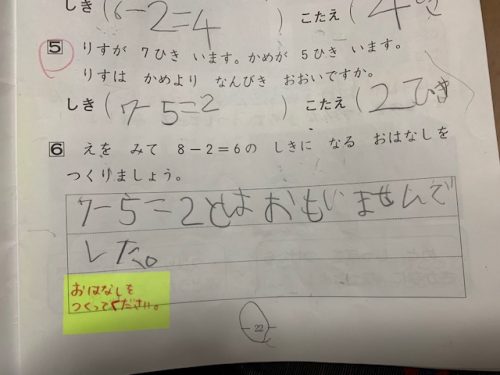 しき（6－2＝4　）こたえ（4
5 りすが 7ひき います。かめが 5ひき います。
りすは かめより なんびき おおいですか。
しき（7－5＝2　）こたえ（2ひき
6 えを みて 8－2＝6の しきに なる おはなしを
つくりましょう。
7－5＝2とはおもいませんで
した。
おはなしを
つくってください。
22